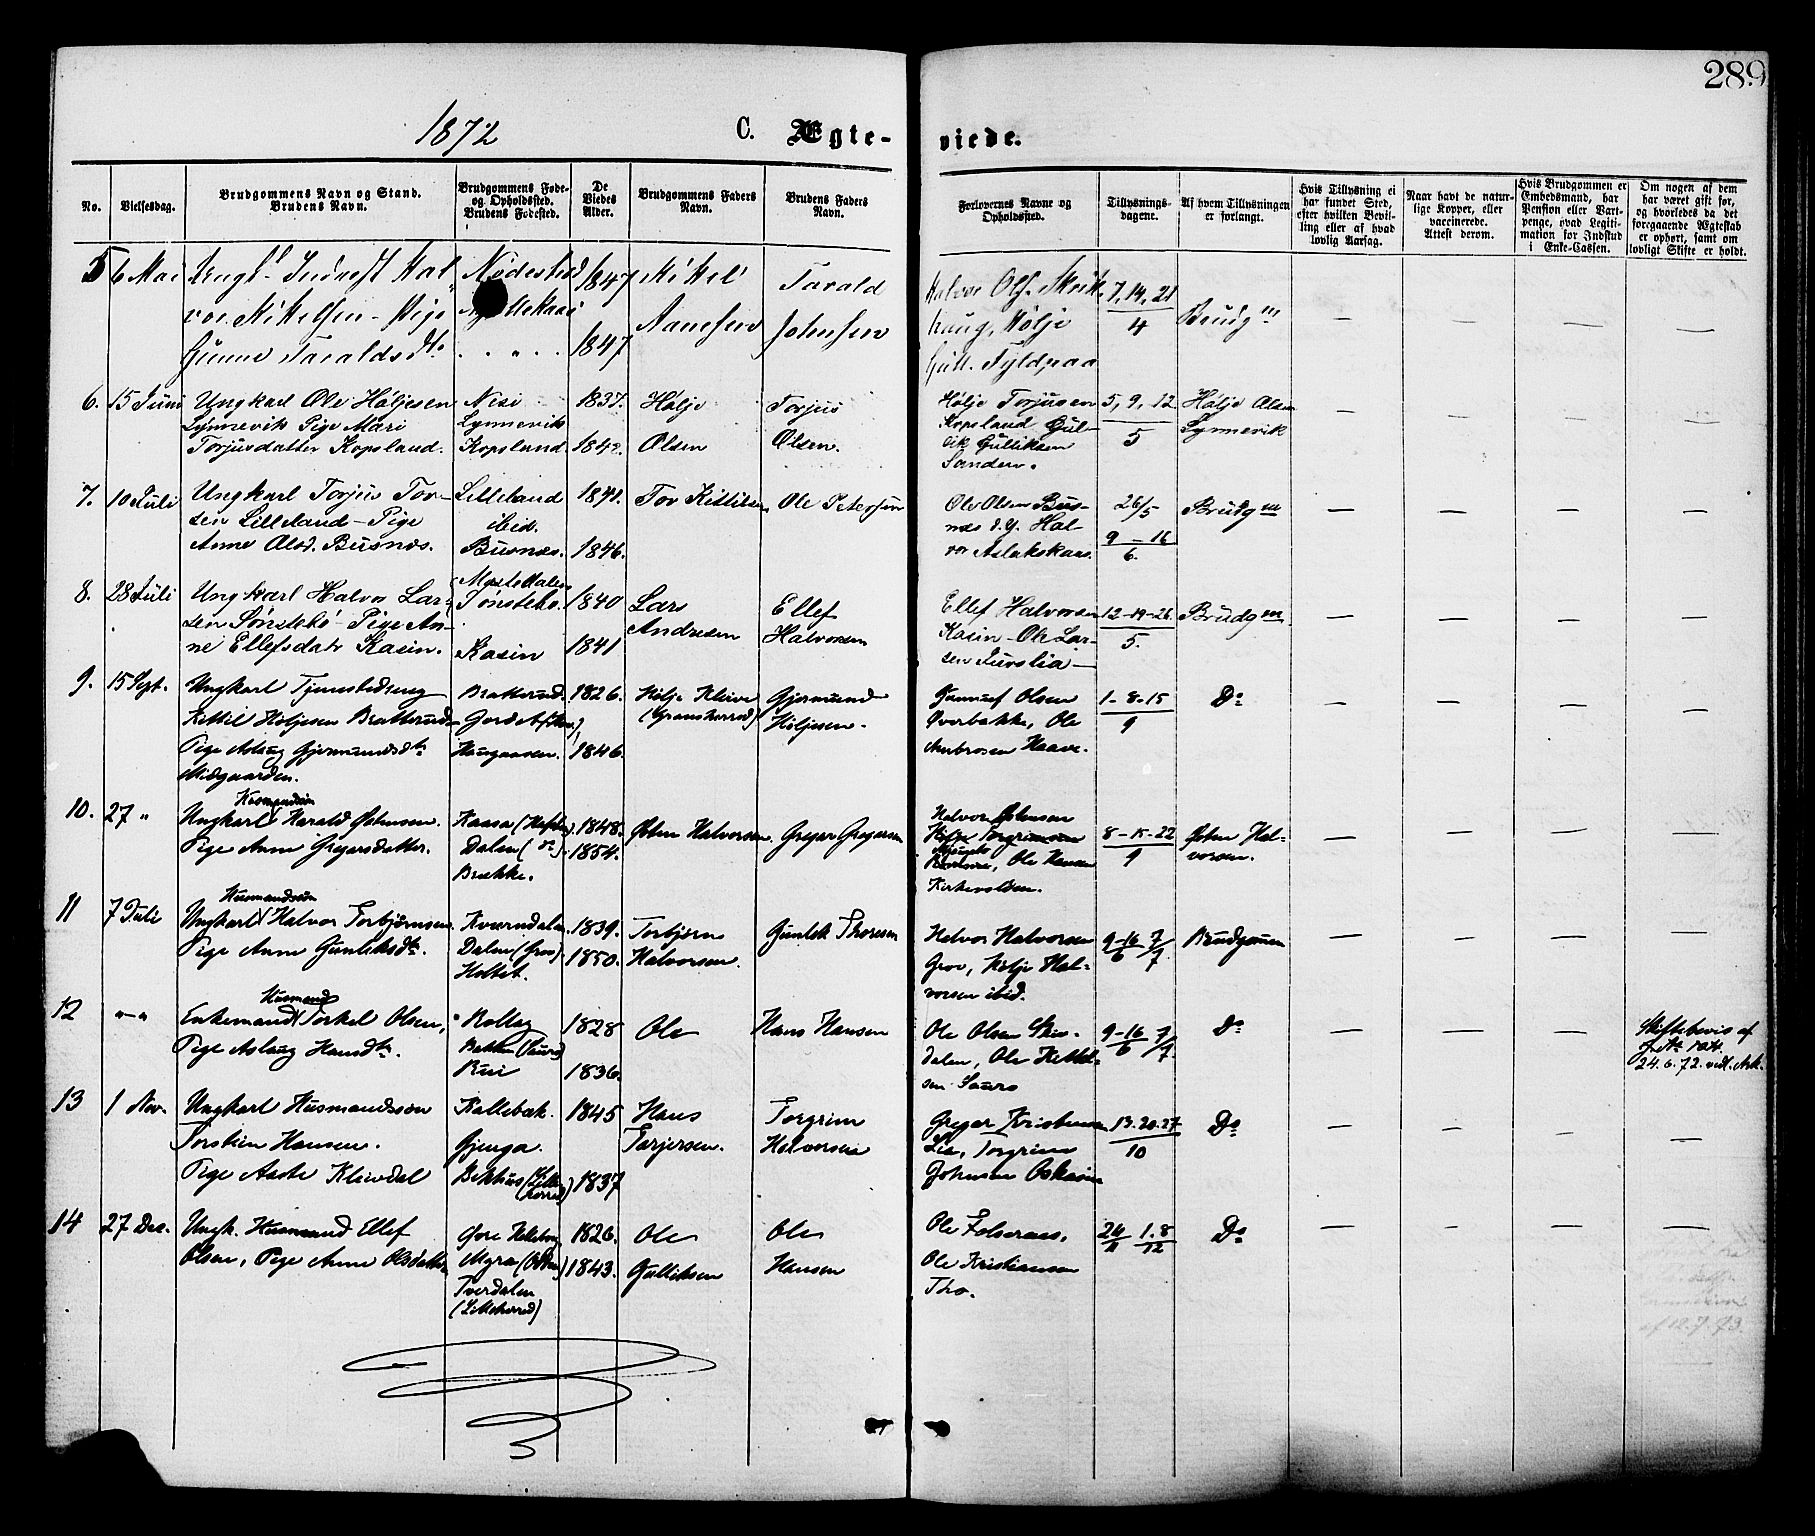 289
1872
C. Ægte-
viede.
No.
Vielsesdag.
Brudgommens Navn og Stand.
Brudens Navn.
Brudgommens Føde-
og Opholdssted.
Brudens Fødested.
De
Viedes
Alder.
Brudgommens Faders
Navn.
Brudens Faders
Navn.
Forlovernes Navne og
Opholdssted.
Tillysnings-
dagene.
Af hvem Tillysningen
er forlangt.
Hvis Tillysning ei
har fundet Sted,
efter hvilken Bevil-
ling eller af hvad
lovlig Aarsag.
Naar havt de natur-
lige Kopper, eller
vaccinerede.
Attest derom.
Hvis Brudgommen er
Embedsmand, har
Pension eller Vart-
penge, hvad Legiti-
mation for Indskud
i Enke-Cassen.
Om nogen af dem
har været gift før,
og hvorledes da det
foregaaende Ægteskab
er ophørt, samt om
lovligt Skifte er holdt.
5 6 Mai
Hal-
vor Mikelsen - Pige
Gunne Taraldsdtr
1847
1847
Mikel
Aanesen
Tarald
Johnsen
Halvor Ols.
haug, Hølje
Gull.
7, 14, 21
4
Brudgm
6. 15 Juni
Ungkarl Ole Høljesen
Lynnevik Pige Mari
Torjusdatter Kopsland.
Nisi
Lynnevik
Kopsland
1837.
1842.
Hølje
Olsen
Torjus
Olsen.
Hølje Torjusen
Kopsland Gul-
lik Gulliksen
Sanden.
5, 9, 12
5
Hølje Olsen
Lynnevik
7. 10 Juli
Ungkarl Torjus Tor-
sen Lilleland - Pige
Anne Olsd. Busnes.
Lilleland
ibid.
Busnes.
1841.
1846.
Tor Kittilsen
Ole Petersen
Ole Olsen Bus-
nes d.y. Hal-
vor Aslakskaas.
26/5
9 - 16
6.
Brudgm
8. 28 Juli
Ungkarl Halvor Lar-
sen Sønstebø - Pige An-
ne Ellefsdatr Kasin.
Sønstebø.
Kasin
1840
1841
Lars
Andresen
Ellef
Halvorsen
Ellef Halvorsen
Kasin - Ole Lar-
sen Jurslia -
12-19-26
5.
Brudgm
9. 15 Sept.
Ungkarl Tjenestedreng
Kittil Høljesen Bratterud -
Pige Aslaug Gjermundsdtr
Midgaarden.
Bratterud.
Haugaasen.
1826.
1846.
Hølje Kleive
(Gransherred)
Gjermund
Høljesen.
Gunnuf Olsen
Øverbakke, Ole
Ambrosen Haave.
1-8-15
9
Do
10. 27 "
Husmandssøn
Ungkarl Harald Østensen.
Pige Anne Gregarsdatter.
Kaasa
Dalen (do).
Brække.
1848.
1854.
Østen Halvorsen.
Gregar Gregarsen
Halvor Østensen
Hølje Torgrimsen
Ole Hansen
Kirkevolden.
8-15-22
9
Østen Hal-
vorsen.
11 7 Juli
Husmandssøn
Ungkarl Halvor Torbjørnsen.
Pige Anne Gunleksdtr.
Kverndalen
Dalen (Grov)
Holtet.
1839.
1850.
Torbjørn
Halvorsen.
Gunlek Thoresen
Halvor Halvorsen
Grov, Hølje Hal-
vorsen ibid.
9-16 7
6 7
Brudgommen
12 " - "
Husmand
Enkemand Torkel Olsen,
Pige Aslaug Hansdtr.
Rollag
Bakken (Sauro)
Rui
1828
1836.
Ole
Hans Hansen
Ole Olsen Ski-
dalen, Ole Kittil-
sen Sauro
9-16 7
6 7
Do
Skiftebevis af
24.6.72. vedl. Ark.
13 1 Nov.
Ungkarl Husmandssøn
Torstein Hansen.
Pige Aaste Kleivdal
Kallebæk.
Gjenga.
Bekhus (Lille-
herred)
1845
1837
Hans
Torjersen.
Torgrim
Halvorsen
Gregar Kristensen
Lia, Torgrim
Johnsen
13.20.27
10
Do
14 27 Des.
Ungk. Husmand Ellef
Olsen, Pige Anne Olsdatter
Tverdalen
(Lilleherred)
1826.
1843.
Ole
Gulliksen
Ole
Hansen
Ole Folseraas.
Ole Kristiansen
Tho.
24 1.8
11 12
Do
af 12.7.73.